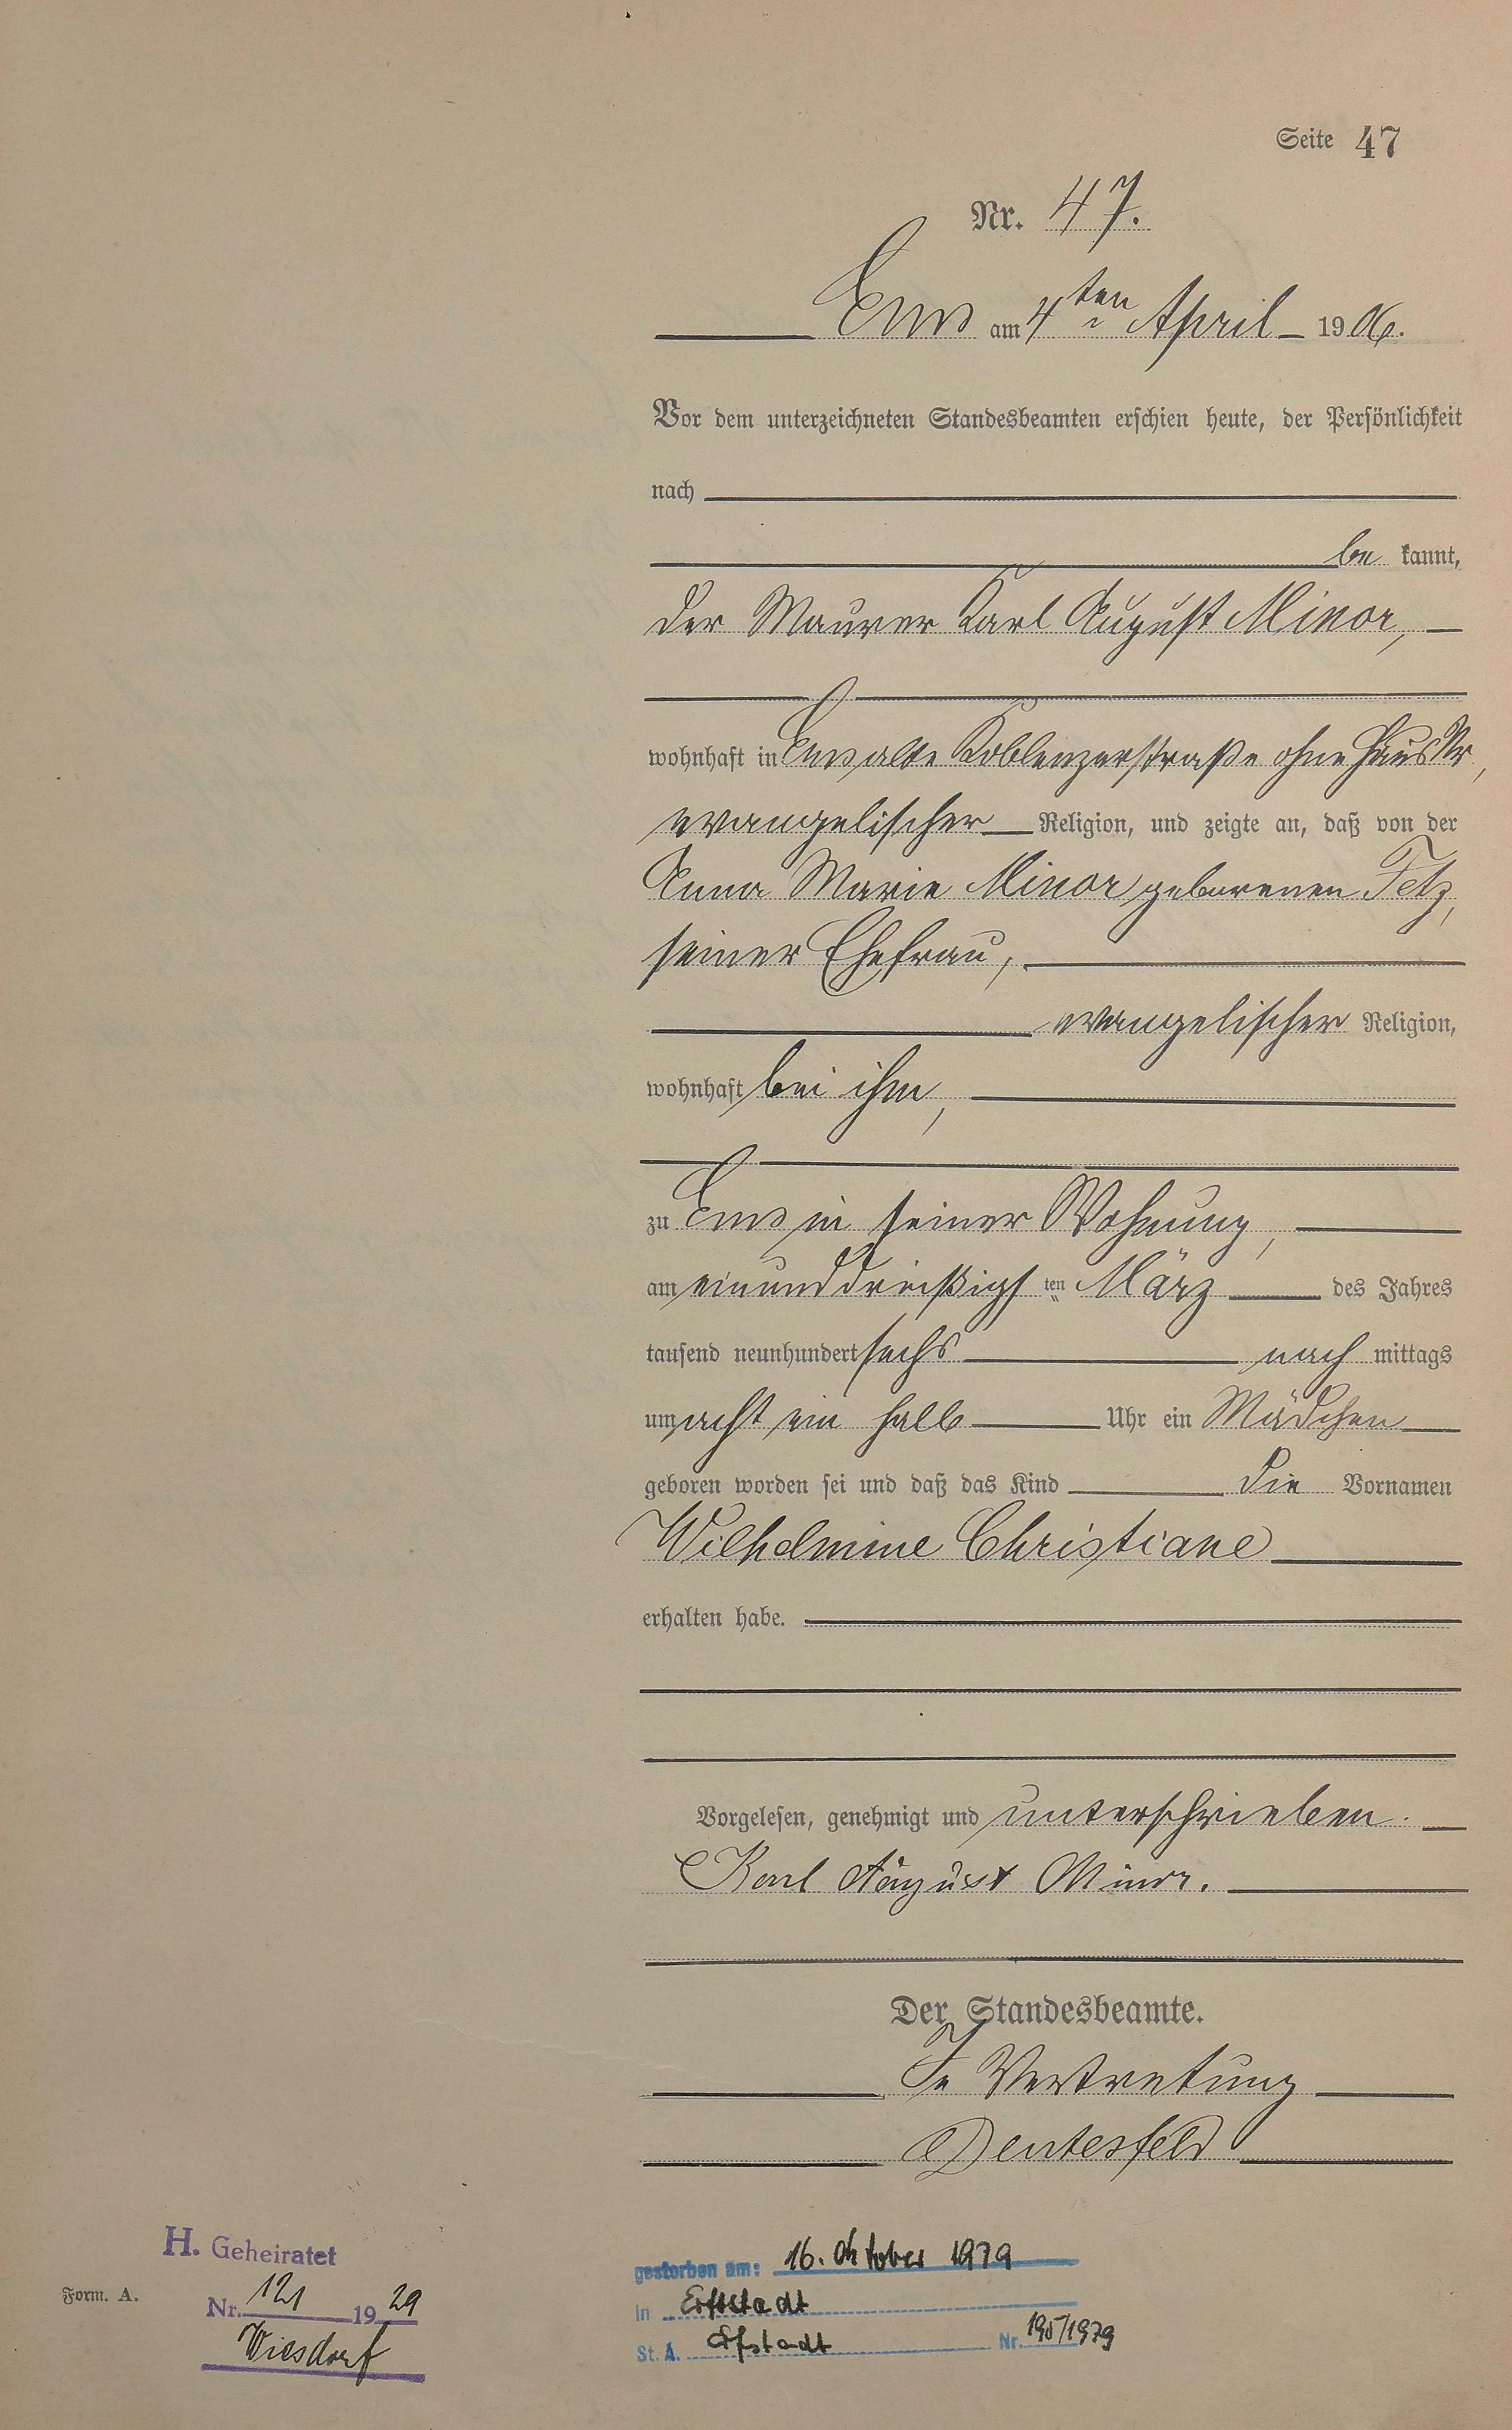 Seite 47
Nr. 47.
Ems am 4ten April 1906.
Vor dem unterzeichneten Standesbeamten erschien heute, der Persönlichkeit
nach
be kannt,
der Maurer Karl August Minor,
wohnhaft in Ems alte Koblenzerstraße ohne Haus Nr,
evangelischer Religion, und zeigte an, daß von der
Anna Marie Minor geborenen Fetz,
seiner Ehefrau,
evangelischer Religion,
wohnhaft bei ihm,
zu Ems in seiner Wohnung,
am einunddreißigsten März des Jahres
tausend neunhundert sechs nach mittags
um acht ein halb Uhr ein Mädchen
geboren worden sei und daß das Kind die Vornamen
Wilhelmine Christiane
erhalten habe.
Vorgelesen, genehmigt und unterschrieben.
Karl August Minor.
Der Standesbeamte.
In Vertretung
H. Geheiratet
Nr. 121 1929
Wiesdorf
Form. A.
gestorben am: 16. Oktober 1979
in Erftstadt
St. A. Erftstadt Nr. 195/1979